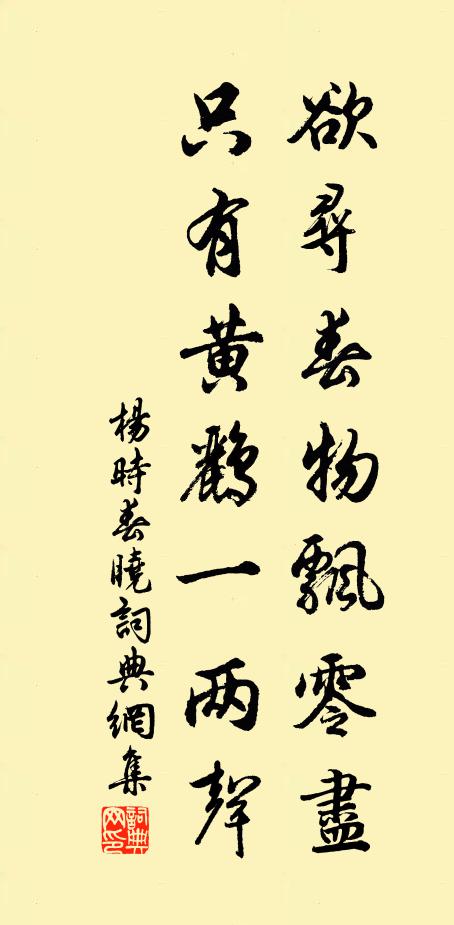 欲尋春物飄零盡
只有黃鸝一两聲
楊時春曉詞典網集
詞典网印